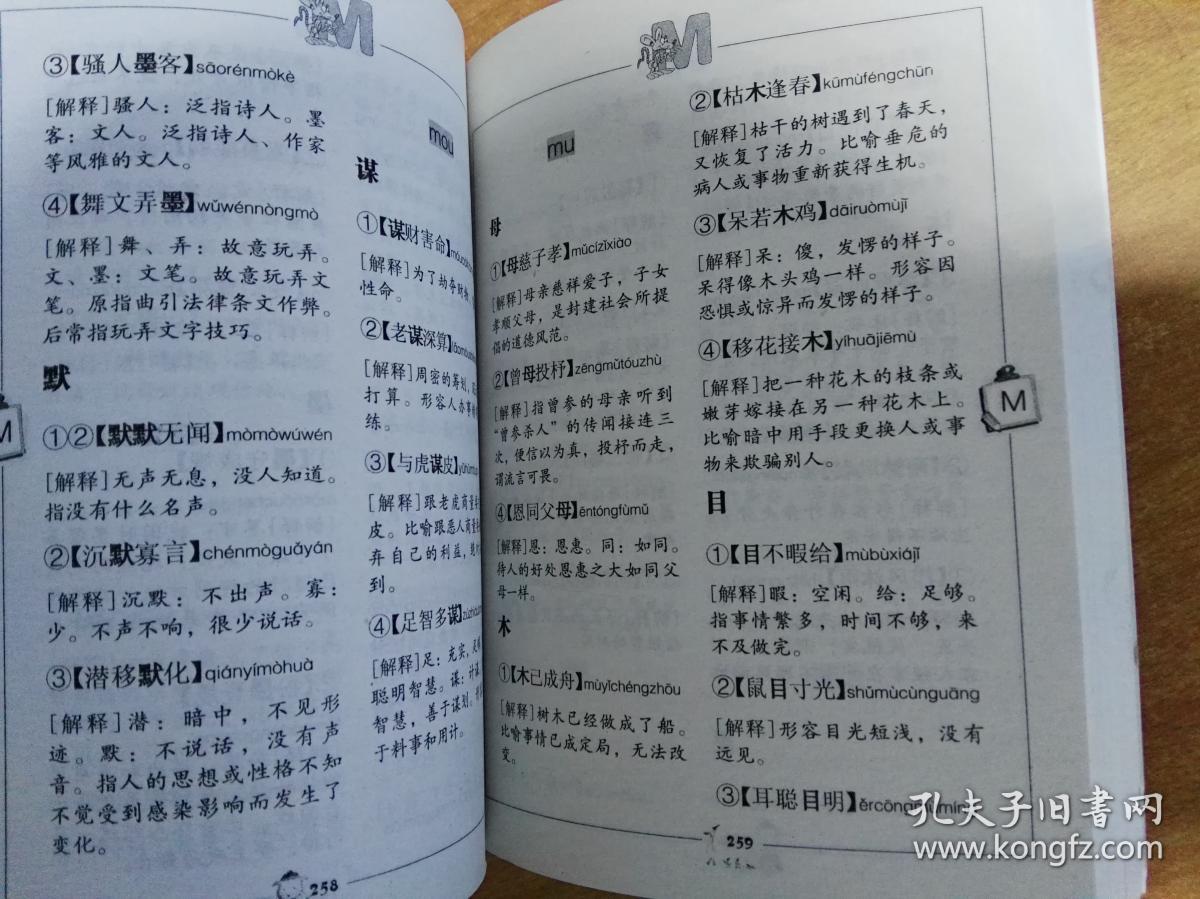 M
③【骚人墨客】sāorénmòkè
[解释]骚人：泛指诗人。墨
客：文人。泛指诗人、作家
等风雅的文人。
④【舞文弄墨】wǔwénnòngmò
[解释]舞、弄：故意玩弄。
文、墨：文笔。故意玩弄文
笔。原指曲引法律条文作弊。
后常指玩弄文字技巧。
默
①②【默默无闻】mòmòwúwén
[解释]无声无息，没人知道。
指没有什么名声。
②【沉默寡言】chénmòguǎyán
[解释]沉默：不出声。寡：
少。不声不响，很少说话。
③【潜移默化】qiányímòhuà
[解释]潜：暗中，不见形
迹。默：不说话，没有声
音。指人的思想或性格不知
不觉受到感染影响而发生了
变化。
M
mou
谋
①【谋财害命】
[解释]为了劫夺财物，
性命。
②【老谋深算】
[解释]周密的筹划，
打算。形容人办事
练。
③【与虎谋皮】
[解释]跟老虎商量
皮。比喻跟恶人商量
弃自己的利益，
到。
④【足智多谋】
[解释]足：充实，
聪明智慧。谋：计
智慧，善于谋划。
于料事和用计。
258
M
mu
母
①【母慈子孝】mǔcízǐxiào
[解释]母亲慈祥爱子，子女
孝顺父母，是封建社会所提
倡的道德风范。
②【曾母投杼】zēngmǔtóuzhù
[解释]指曾参的母亲听到
“曾参杀人”的传闻接连三
次，便信以为真，投杼而走，
谓流言可畏。
④【恩同父母】ēntóngfùmǔ
[解释]恩：恩惠。同：如同。
待人的好处恩惠之大如同父
母一样。
木
①【木已成舟】mùyǐchéngzhōu
[解释]树木已经做成了船。
比喻事情已成定局，无法改
变。
②【枯木逢春】kūmùféngchūn
[解释]枯干的树遇到了春天，
又恢复了活力。比喻垂危的
病人或事物重新获得生机。
③【呆若木鸡】dāiruòmùjī
[解释]呆：傻，发愣的样子。
呆得像木头鸡一样。形容因
恐惧或惊异而发愣的样子。
④【移花接木】yíhuājiēmù
[解释]把一种花木的枝条或
嫩芽嫁接在另一种花木上。
比喻暗中用手段更换人或事
物来欺骗别人。
目
①【目不暇给】mùbùxiájǐ
[解释]暇：空闲。给：足够。
指事情繁多，时间不够，来
不及做完。
②【鼠目寸光】shǔmùcùnguāng
[解释]形容目光短浅，没有
远见。
③【耳聪目明】ěrcōngmùmíng
M
259
孔夫子旧书网
www.kongfz.com